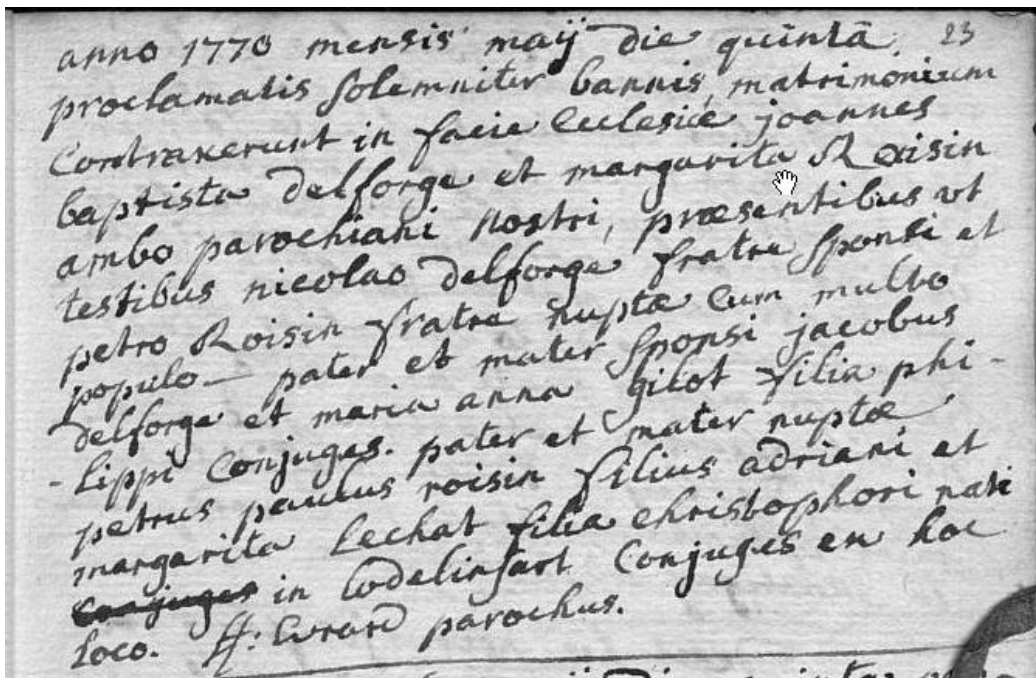 anno 1770 mensis maij die quintâ. 23
proclamatis solemniter bannis, matrimonium
Contraxerunt in facie Ecclesiæ joannes
baptista delforge et margarita Roisin
ambo parochiani nostri, præsentibus ut
testibus nicolao delforge fratre sponsi et
petro Roisin fratre nuptæ cum multo
populo — pater et mater sponsi jacobus
delforge et maria anna gilot filia phi-
-lippi Conjuges. pater et mater nuptæ
petrus paulus roisin filius adriani et
margarita Lechat filia christophori nati
Conjuges in lodelinsart Conjuges en hoc
loco. parochus.